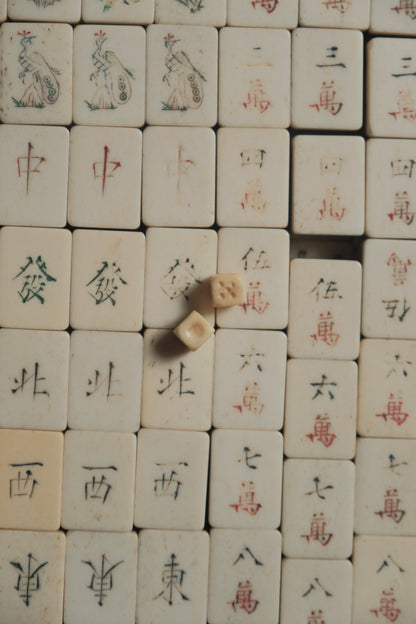 萬 萬 萬
萬 三萬 三萬
中 中 中 四萬 四萬 四萬
發 發 發 伍萬 伍萬 伍萬
北 北 北 六萬 六萬 六萬
西 西 西 七萬 七萬 七萬
東 東 東 八萬 八萬 八萬